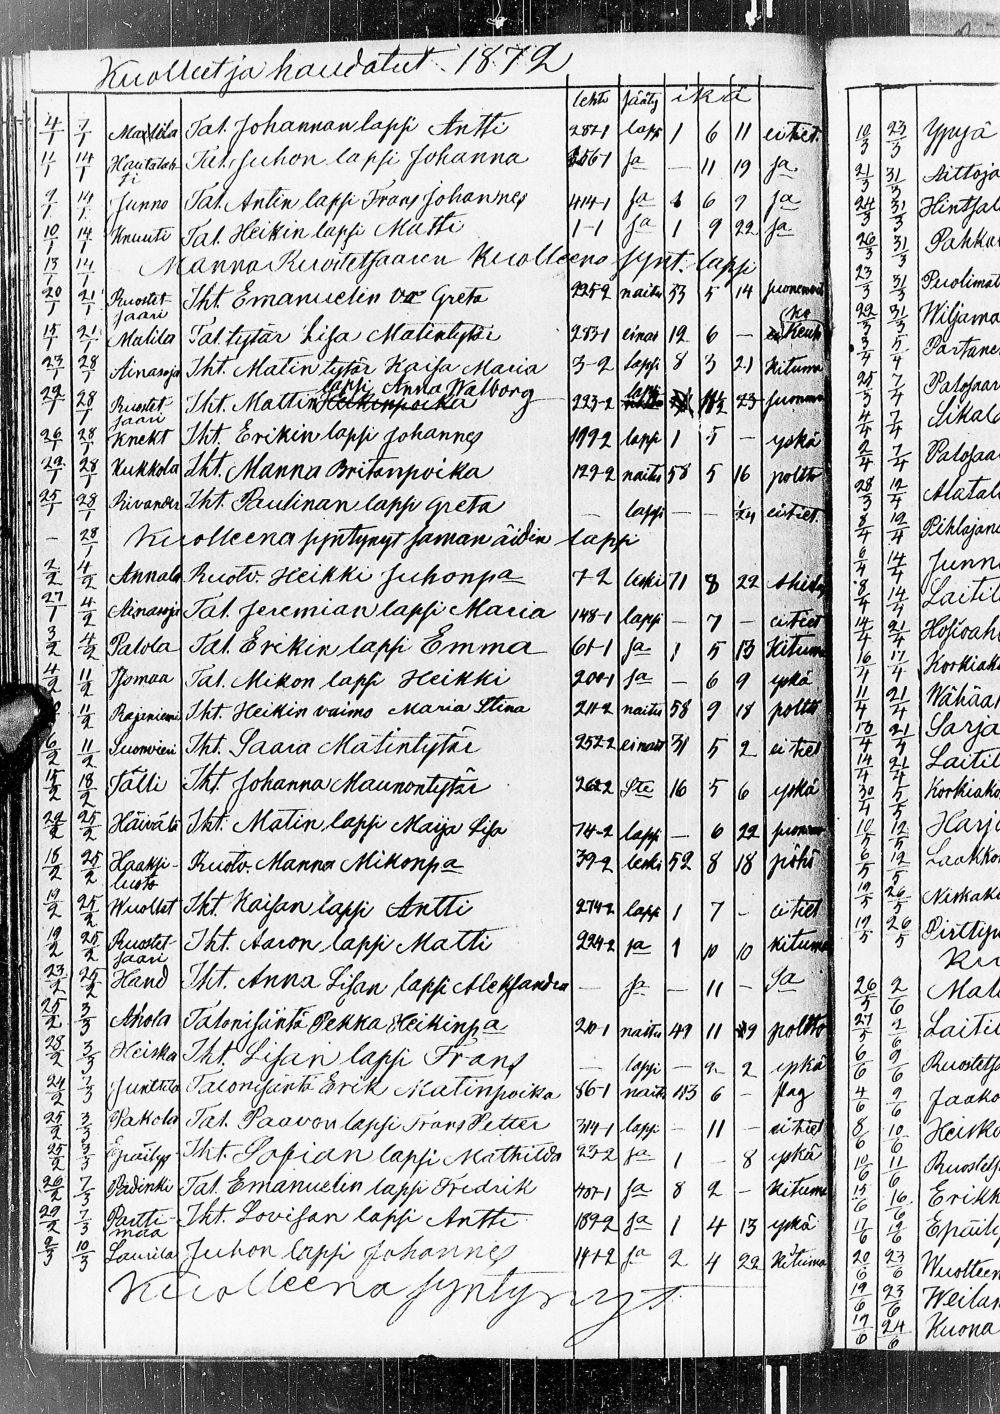 Kuolleet ja haudatut 1872
lehti sääty ikä
4/1 7/1 Mattila Tal. Johannan lapsi Antti 282-1 lapsi 1 6 11 ei tiet.
11/1 14/1 Hautalahti Tal. Juhon lapsi Johanna ja — 11 19 ja
9/1 14/1 Junno Tal. Antin lapsi Frans Johannes 414-1 ja 1 6 7 ja
10/1 14/1 Knuuti Tal. Heikin lapsi Matti 1-1 ja 1 9 22 ja
13/1 14/1 Manna Ruostetsaaren Kuolleena synt. lapsi
20/1 21/1 Ruostetsaari Iht. Emanuelin Greta 225-2 naitu 53 5 14
15/1 21/1 Matila Tal. tytär Lisa Matintytär 283-1 einai 12 6 —
23/1 28/1 Ainasoja Iht. Matin tytär Kaisa Maria 3-2 lapsi 8 3 21 Kituma
28/1 Ruostetsaari Iht. Mattin lapsi Anna Walborg 223-2 lapsi 23
26/1 28/1 Knekt Iht. Erikin lapsi Johannes 199-2 lapsi 1 5 — yskä
22/1 28/1 Kukkola Iht. Manna Britanpoika 129-2 naitu 58 5 16 poltto
25/1 28/1 Rivander Iht. Paulinan lapsi Greta — lapsi — — 24 ei tiet.
— 28/1 Kuolleena syntynyt saman äidin lapsi
2/2 4/2 Annala Ruotv. Heikki Juhonpa 7-2 leski 71 8 22
27/1 4/2 Ainasoja Tal. Jeremian lapsi Maria 148-1 lapsi — 7 — ei tiet
3/2 4/2 Patola Tal. Erikin lapsi Emma 61-1 ja 1 5 13 Kituma
4/2 11/2 Isomaa Tal. Mikon lapsi Heikki 200-1 ja — 6 9 yskä
11/2 Rajaniemi Iht. Heikin vaimo Maria Stina 211-2 naitu 58 9 18 poltto
6/2 11/2 Suonvieri Iht. Saara Matintytär 252-2 einait 31 5 2 ei tiet
15/2 18/2 Jälli Iht. Johanna Maunontytär 262-2 16 5 6 yskä
25/2 Häivälä Iht. Matin lapsi Maija Lisa 74-2 lapsi — 6 22
18/2 25/2 Haapsiluoto Ruotv. Manna Mikonpa 39-2 leski 52 8 18 pöhö
19/2 25/2 Wuollet Iht. Kaisan lapsi Antti 274-2 lapsi 1 7 — ei tiet
19/2 25/2 Ruostetsaari Iht. Aaron lapsi Matti 224-2 ja 1 10 10 kituma
23/2 25/2 Hand Iht. Anna Lisan lapsi Aleksandra — ja — 11 — ja
25/2 3/3 Ahola Talonisäntä Pekka Heikinpa 20-1 naitu 49 11 poltto
28/2 3/3 Heiska Iht. Lisan lapsi Frans — lapsi — 2 2 yskä
24/2 3/3 Junttila Talonisäntä Erik Matinpoika 86-1 naitu 6 —
25/2 3/3 Pakola Tal. Paavon lapsi Frans Petter 314-1 lapsi — 11 — ei tiet
25/2 3/3 Epäilys Iht. Sofian lapsi Mathilda 23-2 ja 1 — 8 yskä
26/2 7/3 Tal. Emanuelin lapsi Fredrik 401-1 ja 8 2 — kituma
29/2 7/3 Iht. Lovisan lapsi Antti 189-2 ja 1 4 13 yskä
2/3 10/3 Laurila Juhon lapsi Johannes 141-2 ja 2 4 22 kituma
Kuolleena syntynyt
10/3 23/3 Ypyä
21/3 31/3 Aittoja
24/3 31/3 Hintsal
26/3 31/3 Pahka
23/3 31/3 Puolimat
22/3 31/3 Wiljama
3/4 5/4 Partane
25/3 7/4 Palosaar
4/4 7/4 Sikal
2/4 7/4 Palosaa
28/3 12/4 Alatal
8/4 12/4 Pihlajam
6/4 14/4 Junn
8/4 14/4 Laitil
14/4 21/4 Hosioah
16/4 17/4 Korkiak
11/4 21/4 Wähäa
13/4 21/4 Sarja
14/4 21/4 Laitil
30/4 5/5 Korkiako
10/5 12/5 Harj
6/5 12/5 Laakko
19/5 26/5 Niskaka
19/5 26/5 Pirttij
Ku
26/5 2/6 Mat
27/5 2/6 Laitil
6/6 9/6 Ruostets
4/6 9/6 Jaako
8/6 10/6 Heisk
10/6 11/6 Ruostets
15/6 16/6 Erikk
17/6 19/6 Epäily
20/6 23/6 Wuolleen
19/6 23/6 Weilan
17/6 24/6 Kuona